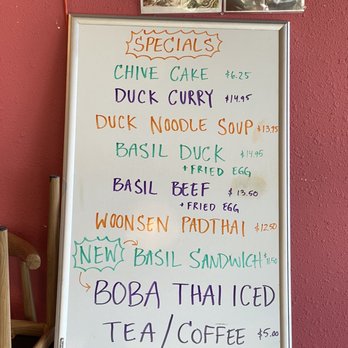 SPECIALS
CHIVE CAKE $6.25
DUCK CURRY $14.95
DUCK NOODLE SOUP $13.95
BASIL DUCK $14.95
+ FRIED EGG
BASIL BEEF $13.50
+ FRIED EGG
WOONSEN PADTHAI $12.50
NEW BASIL SANDWICH $11.50
BOBA THAI ICED
TEA/COFFEE $5.00